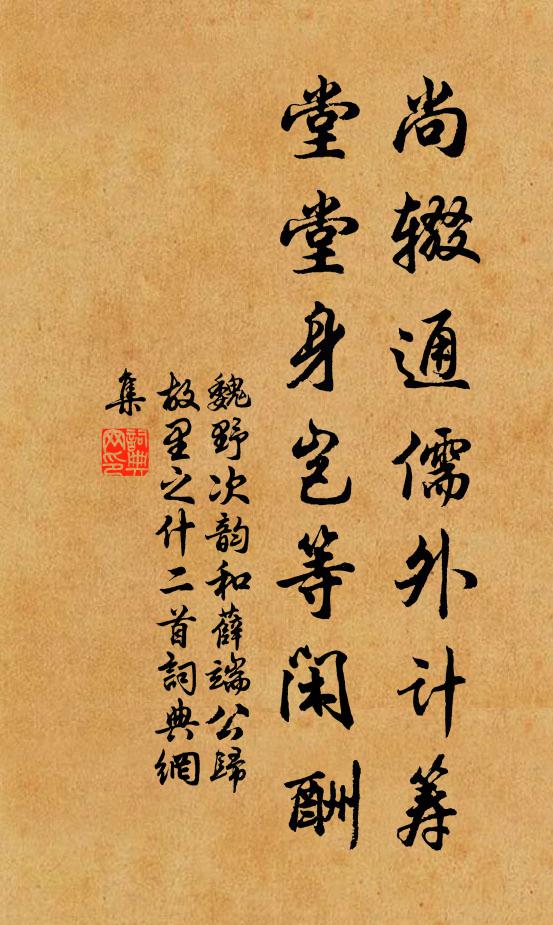 尚辍通儒外计筹
堂堂身岂等闲酬
魏野次韵和薛端公歸
故里之什二首詞典網
集
詞典
网印